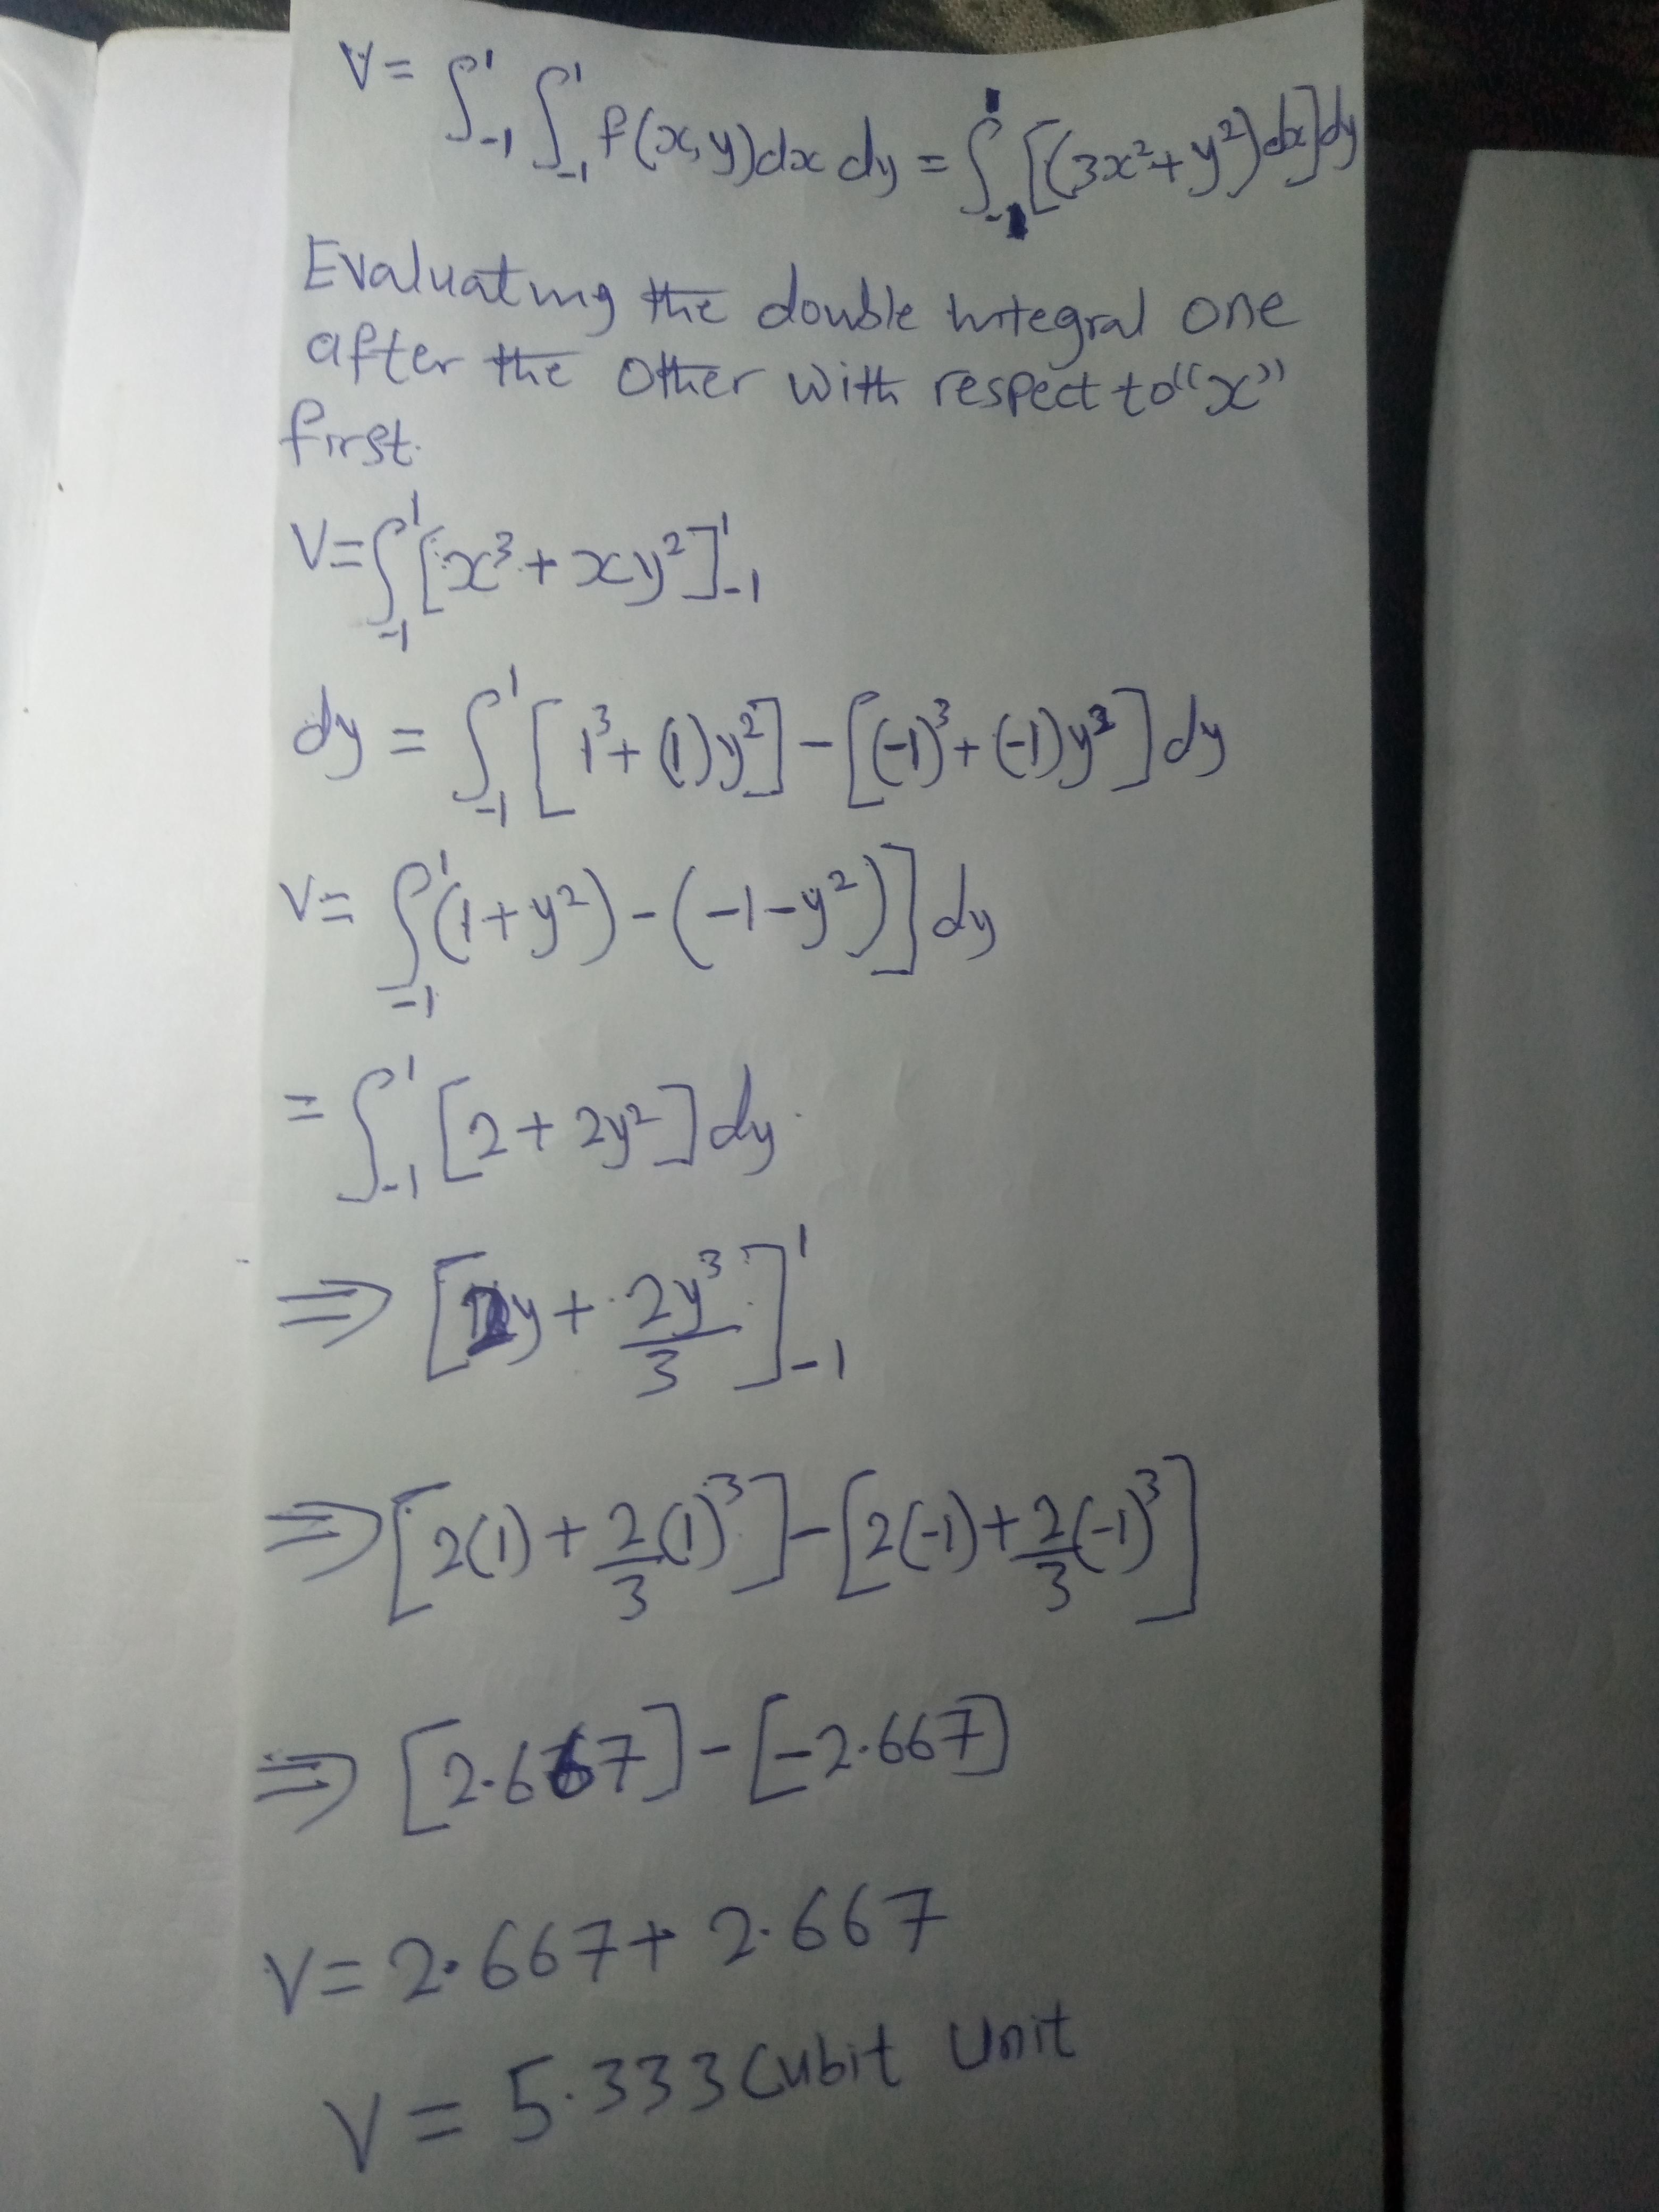 V = ∫₋₁¹ ∫₋₁¹ f(x,y)dx dy = ∫₋₁¹ [(3x²+y²)dx]dy
Evaluating the double integral one
after the other with respect to "x"
first.
V = ∫₋₁¹ [x³ + xy²]₋₁¹
dy = ∫₋₁¹ [1³ + (1)y²] - [(-1)³ + (-1)y²] dy
V = ∫₋₁¹ (1+y²) - (-1-y²)] dy
= ∫₋₁¹ [2 + 2y²] dy.
⇒ [2y + 2y³/3]₋₁¹
⇒ [2(1) + 2/3(1)³] - [2(-1) + 2/3(-1)³]
⇒ [2.667] - [-2.667]
V = 2.667 + 2.667
V = 5.333 Cubit Unit